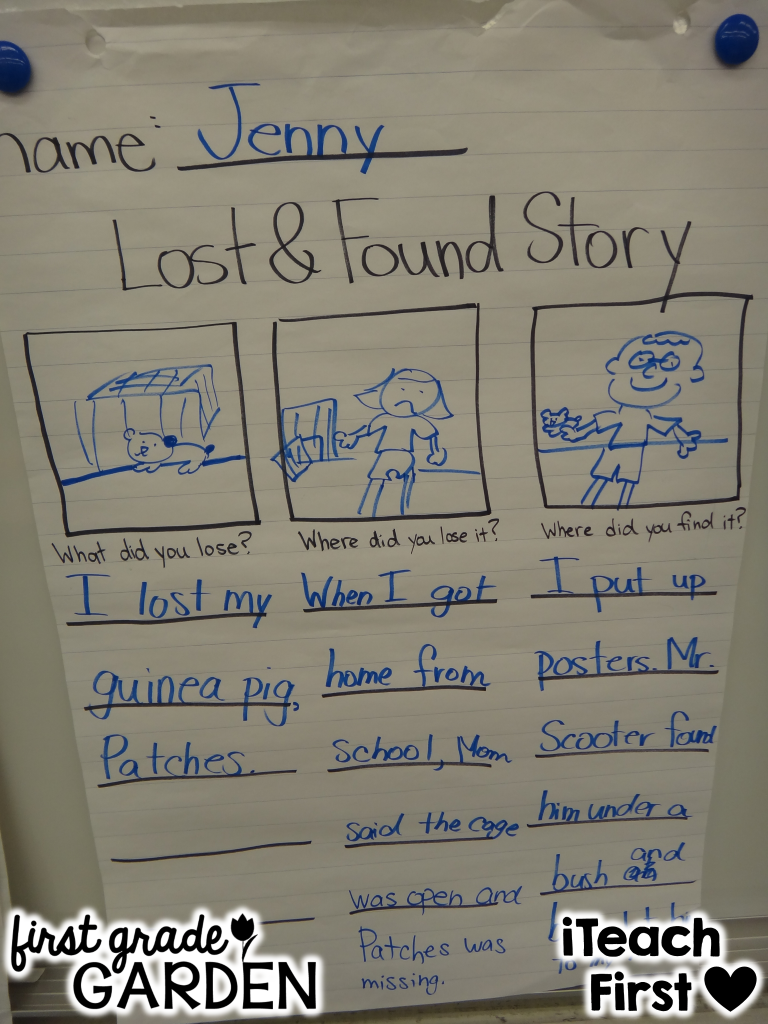 name: Jenny
Lost & Found Story
What did you lose?
I lost my
guinea pig,
Patches.
Where did you lose it?
When I got
home from
school, Mom
said the cage
was open and
Patches was
missing.
Where did you find it?
I put up
posters. Mr.
Scooter found
him under a
bush and
to
first grade
GARDEN
iTeach
First